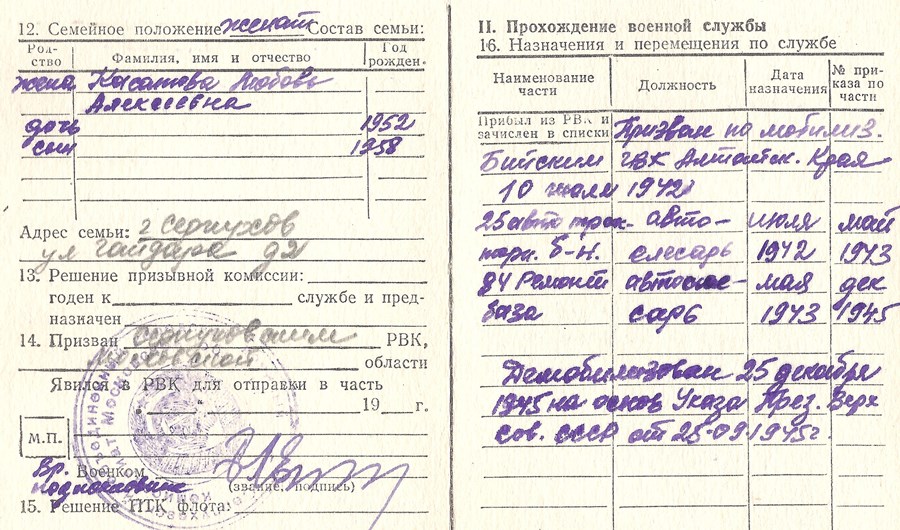 12. Семейное положение женат Состав семьи:
Род-
ство
Фамилия, имя и отчество
Год
рожден.
жена Касатова Любовь
Алексеевна
дочь 1952
сын 1958
Адрес семьи: г Серпухов
ул Гайдара д2
13. Решение призывной комиссии:
годен к службе и пред-
назначен
14. Призван Серпуховским РВК,
Московской области
Явился в РВК для отправки в часть
19 г.
М.П.
Вр. Военком
подполковник (звание, подпись)
15. Решение ПТК флота:
II. Прохождение военной службы
16. Назначения и перемещения по службе
Наименование
части
Должность
Дата
назначения
№ при-
каза по
части
Прибыл из РВК и
зачислен в списки Призван по мобилиз.
Бийским ГВК Алтайск. Края
10 июля 1942
25 авто тран- авто- июля май
порн. б-н. слесарь 1942 1943
84 Ремонт автосле- мая дек
база сарь 1943 1945
Демобилизован 25 декабря
1945 на основ Указа През. Верх
Сов. СССР от 25-09 1945г.